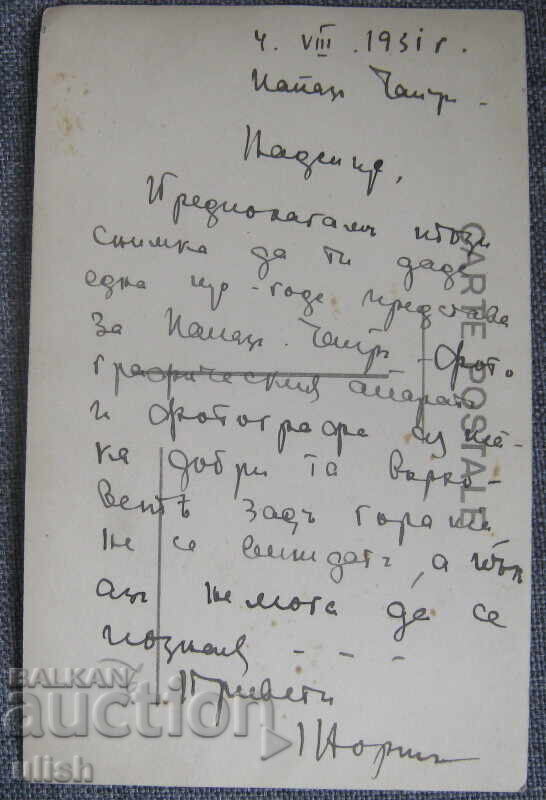 4. VIII. 1931 г.
Папаз Чаир.
Предполагамъ тъзи
снимка да ти даде
една що-годе представа
за Папаз Чаир - фото
графическия апаратъ
и фотографа сѫ та-
ка добри та върхо-
ветѣ задъ гората
не се виждатъ, а
азъ не мога да се
позная - - -
Привети
CARTE POSTALE
BALKAN
auction
ulish